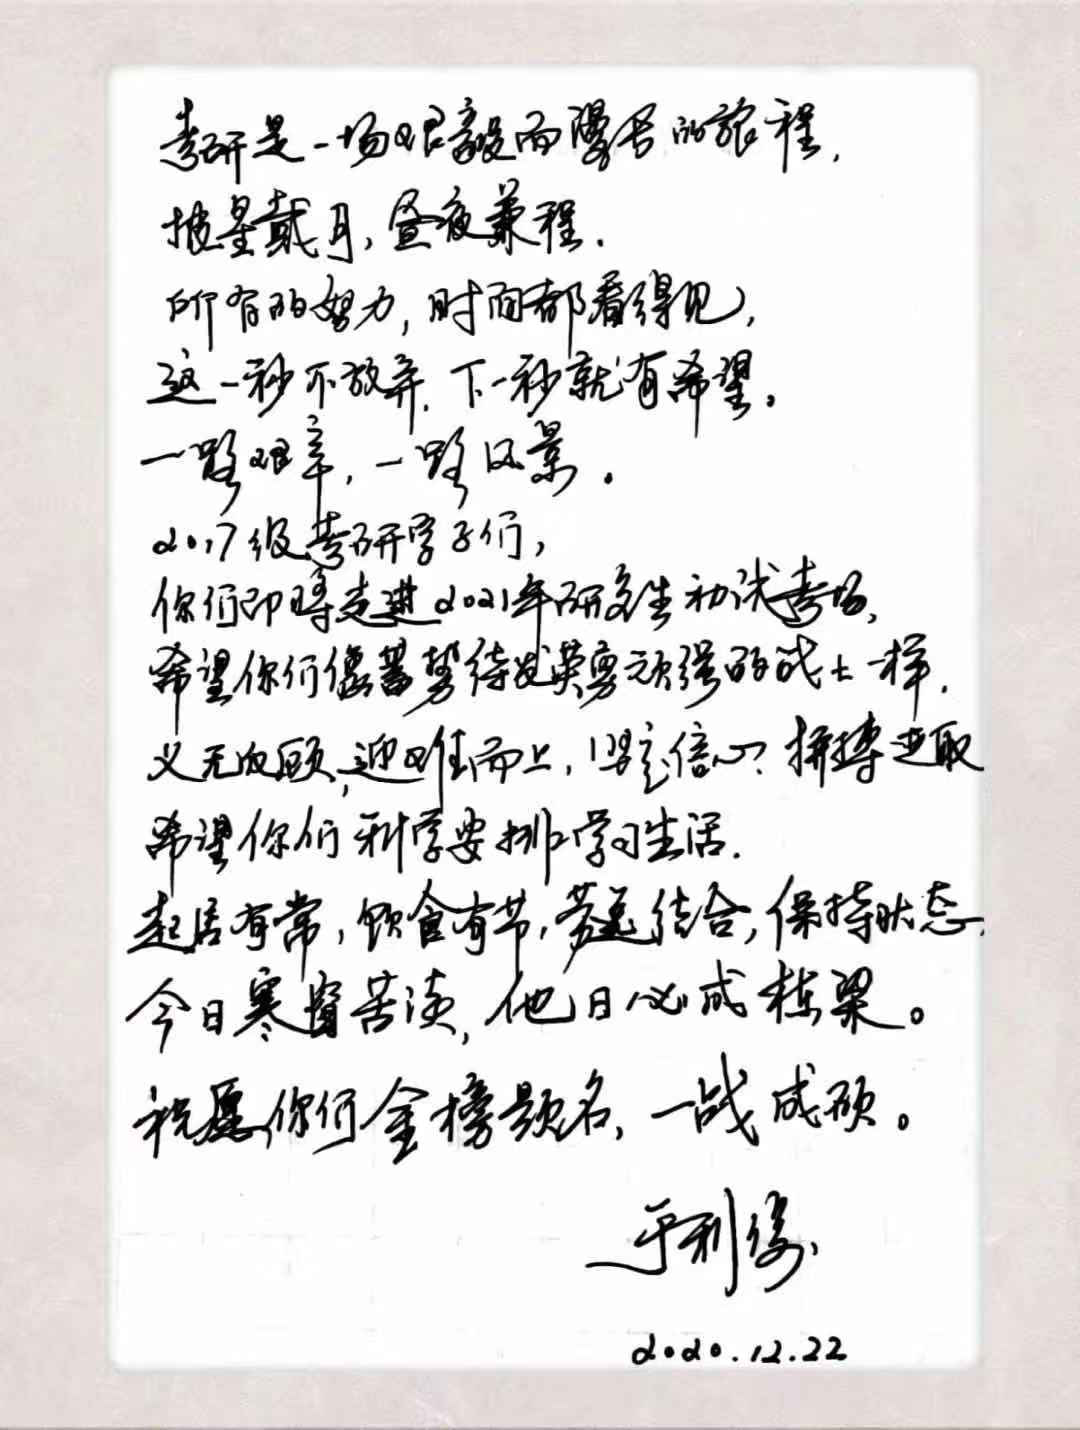 考研是一场艰毅而漫长的旅程,
披星戴月,昼夜兼程.
所有的努力,时间都看得见,
这一秒不放弃.下一秒就有希望。
一路艰辛,一路风景。
2017级考研学子们,
你们即将走进2021年研究生初试考场,
希望你们像蓄势待发英勇顽强的战士一样,
义无反顾,迎难而上,坚定信心,拼搏进取
希望你们科学安排学习生活.
起居有常,饮食有节,劳逸结合,保持状态,
今日寒窗苦读,他日必成栋梁。
祝愿你们金榜题名,一战成硕。
于利
2020.12.22